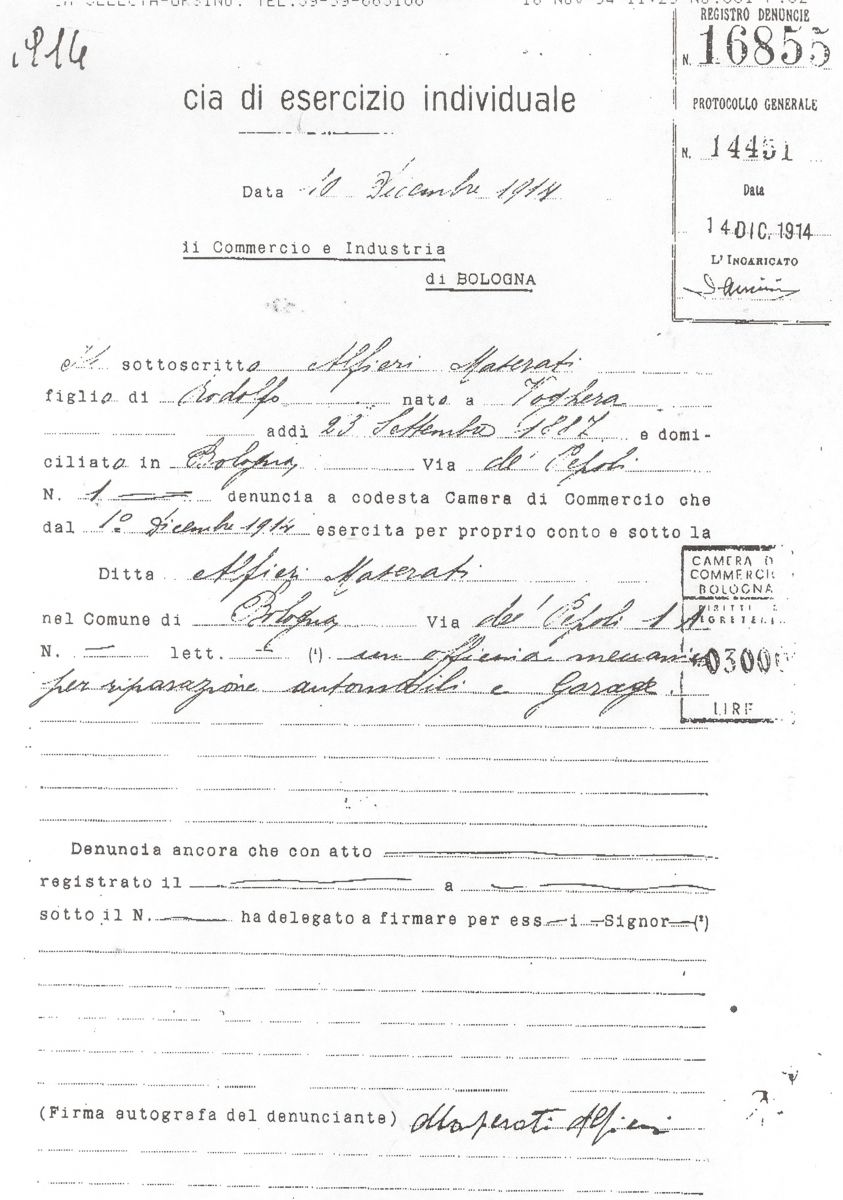 TEL:39-59-683166 16 NOV 94 11:25 No.001 P.02
1914
REGISTRO DENUNCIE
N. 16855
PROTOCOLLO GENERALE
N. 14451
Data
14 DIC. 1914
L'INCARICATO
cia di esercizio individuale
Data 10 Dicembre 1914
di Commercio e Industria
di BOLOGNA
Il sottoscritto Alfieri Maserati
figlio di Rodolfo nato a Voghera
addì 23 Settembre 1887 e domi-
ciliato in Bologna, Via de' Pepoli
N. 1 denuncia a codesta Camera di Commercio che
dal 1º Dicembre 1914 esercita per proprio conto e sotto la
Ditta Alfieri Maserati
nel Comune di Bologna, Via de' Pepoli 1 A
N. — lett. — (¹) un officina meccanica
per riparazione automobili e Garage.
CAMERA DI
COMMERCIO
BOLOGNA
DIRITTI DI
SEGRETERIA
0300
LIRE
Denuncia ancora che con atto
registrato il a
sotto il N. ha delegato a firmare per ess i Signor (²)
(Firma autografa del denunciante) Maserati Alfieri